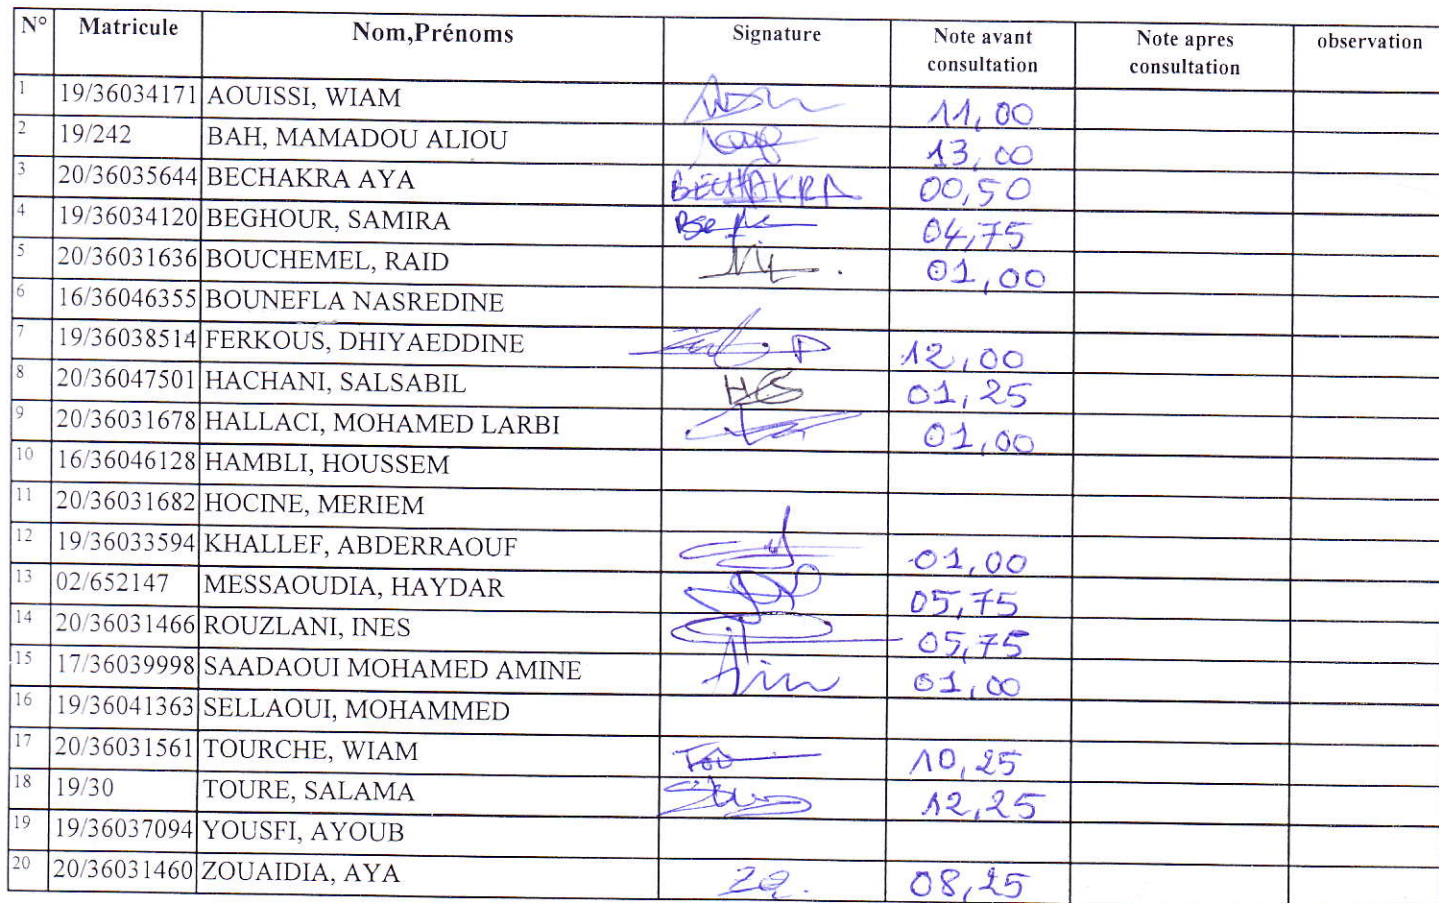 N° Matricule Nom,Prénoms Signature Note avant consultation Note apres consultation observation
1 19/36034171 AOUISSI, WIAM 11,00
2 19/242 BAH, MAMADOU ALIOU 13,00
3 20/36035644 BECHAKRA AYA BECHAKRA 00,50
4 19/36034120 BEGHOUR, SAMIRA 04,75
5 20/36031636 BOUCHEMEL, RAID 01,00
6 16/36046355 BOUNEFLA NASREDINE
7 19/36038514 FERKOUS, DHIYAEDDINE 12,00
8 20/36047501 HACHANI, SALSABIL 01,25
9 20/36031678 HALLACI, MOHAMED LARBI 01,00
10 16/36046128 HAMBLI, HOUSSEM
11 20/36031682 HOCINE, MERIEM
12 19/36033594 KHALLEF, ABDERRAOUF 01,00
13 02/652147 MESSAOUDIA, HAYDAR 05,75
14 20/36031466 ROUZLANI, INES 05,75
15 17/36039998 SAADAOUI MOHAMED AMINE 01,00
16 19/36041363 SELLAOUI, MOHAMMED
17 20/36031561 TOURCHE, WIAM 10,25
18 19/30 TOURE, SALAMA 12,25
19 19/36037094 YOUSFI, AYOUB
20 20/36031460 ZOUAIDIA, AYA 08,25